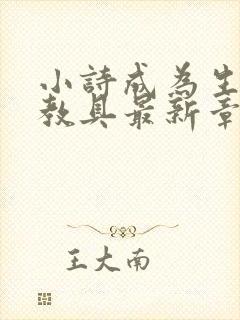 小詩成為生
教具最新章
王大南